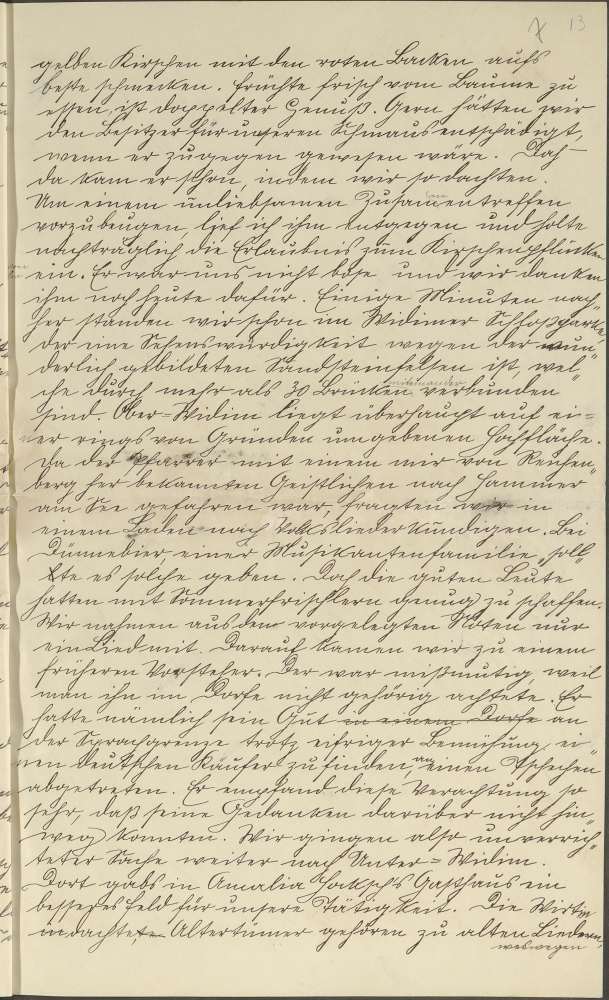 13
gelben Kirschen mit den roten Backen aufs
beste schmecken. Früchte frisch vom Baume zu
essen, ist doppelter Genuß. Gern hätten wir
den Besitzer für unseren Schmaus entschädigt,
wenn er zugegen gewesen wäre. Doch
da kam er schon, indem wir so dachten.
Um einem unliebsamen Zusammentreffen
vorzubeugen, lief ich ihm entgegen und holte
nachträglich die Erlaubnis zum Kirschenpflücken
ein. Er war uns nicht böse und wir danken
ihm noch heute dafür. Einige Minuten nach-
her standen wir schon im Widimer Schloßpark,
der eine Sehenswürdigkeit wegen der wun-
derlich gebildeten Sandsteinfelsen ist, wel-
che durch mehr als 30 Brücken miteinander verbunden
sind. Ober-Widim liegt überhaupt auf ei-
ner rings von Gründen umgebenen Hochfläche.
Da der Pfarrer mit einem mir von Reichen-
berg her bekannten Geistlichen nach Hammer
am See gefahren war, fragten wir in
einem Laden nach Volksliederkundigen. Bei
Dünnebier einer Musikantenfamilie soll-
te es solche geben. Doch die guten Leute
hatten mit Sommerfrischlern genug zu schaffen.
Wir nahmen aus den vorgelegten Noten nur
ein Lied mit. Darauf kamen wir zu einem
früheren Vorsteher. Der war mißmutig, weil
man ihn im Dorfe nicht gehörig achtete. Er
hatte nämlich sein Gut in einem Dorfe an
der Sprachgrenze trotz eifriger Bemühung, ei-
nen deutschen Käufer zu finden, an einen Tschechen
abgetreten. Er empfand diese Verachtung so
sehr, daß seine Gedanken darüber nicht hin-
weg konnten. Wir gingen also unverrich-
teter Sache weiter nach Unter-Widim.
Dort gabs in Amalia Hocksch's Gasthaus ein
besseres Feld für unsere Tätigkeit. Die Wirtin
dachte, Altertümer gehören zu alten Liedern,
weswegen